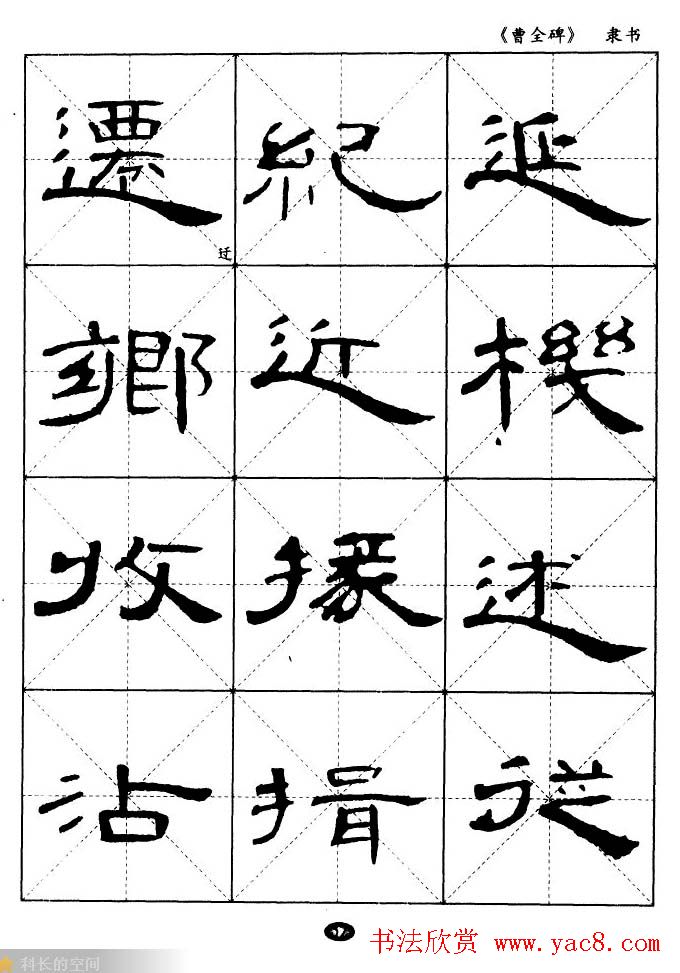 《曹全碑》 隶书
遷 紀 延
迁
鄉 近 機
收 掾 述
沾 揖 從
书法欣赏 www.yac8.com
科长的空间